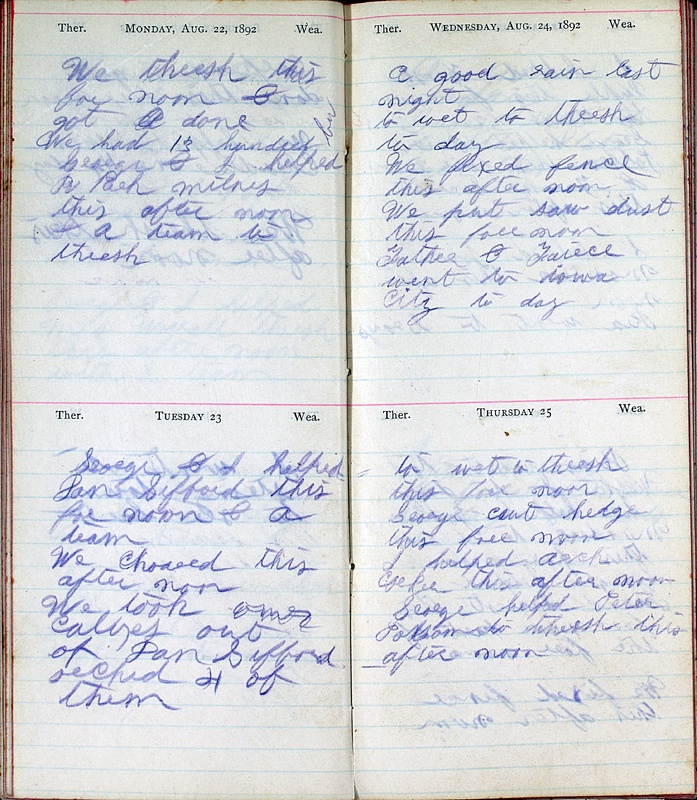 Ther. MONDAY, AUG. 22, 1892 Wea.
We thresh this
foe noon &
got done
We had 13 hundred bu
George & I helped
milnes
this after noon
& a team to
thresh
Ther. TUESDAY 23 Wea.
George & I helped
Dan Gifford this
foe noon & a
team
We choreed this
after noon
We took
calves out
of Dan Gifford
orched 21 of
them
Ther. WEDNESDAY, AUG. 24, 1892 Wea.
A good rain last
night
to wet to thresh
to day
We fixed fence
this after noon
We put saw dust
this fore noon
Father &
went to Iowa
City to day
Ther. THURSDAY 25 Wea.
to wet to thresh
this fore noon
George cut hedge
this fore noon
I helped arch
this after noon
George helped Peter
to thresh this
after noon